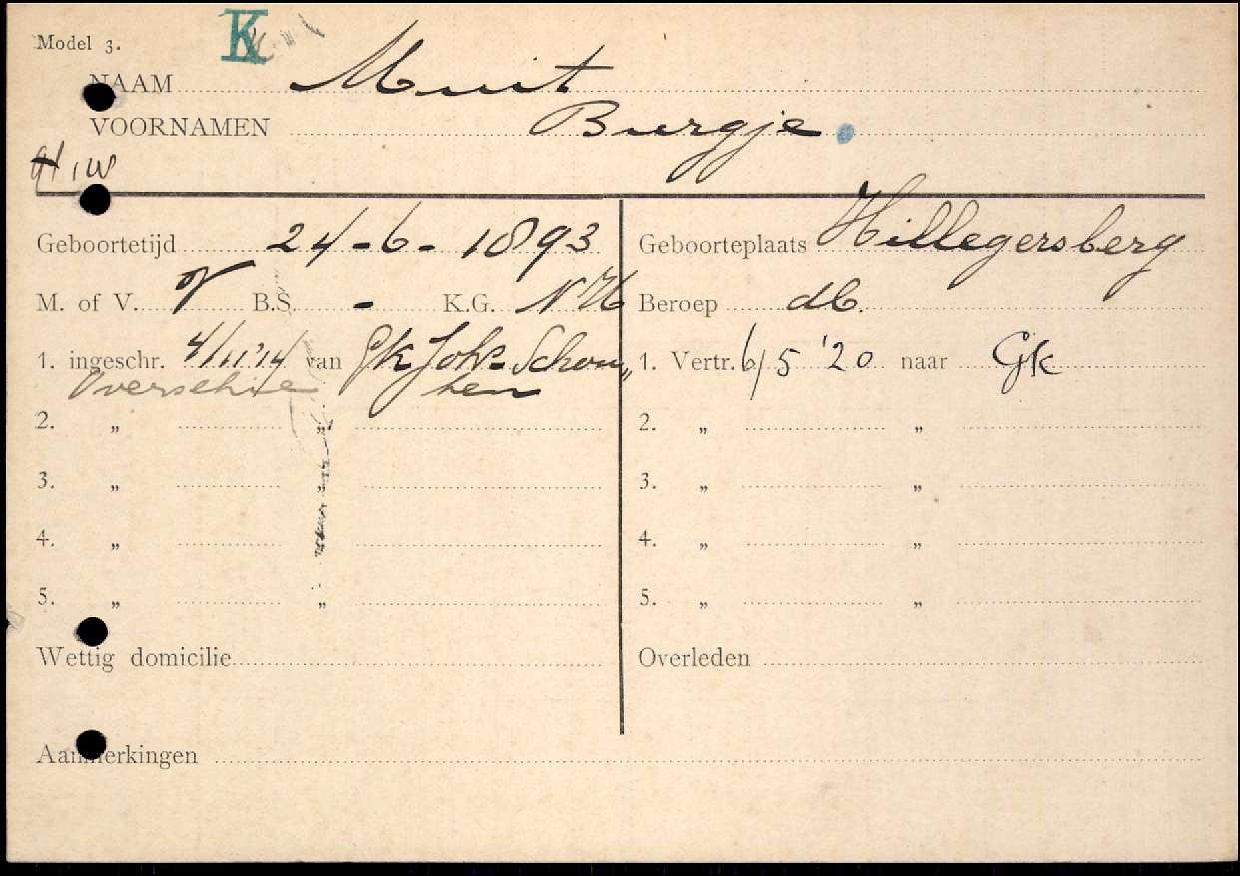 Model 3. K
NAAM Muit
VOORNAMEN Burgje
H, W
Geboortetijd 24-6-1893 Geboorteplaats Hillegersberg
M. of V. V B.S. - K.G. NH Beroep db.
1. ingeschr. 4/11'14 van Gk Joh Schou„ 1. Vertr. 6/5 '20 naar Gk
Overschie ten
2. „ „ 2. „ „
3. „ „ 3. „ „
4. „ „ 4. „ „
5. „ „ 5. „ „
Wettig domicilie Overleden
Aanmerkingen